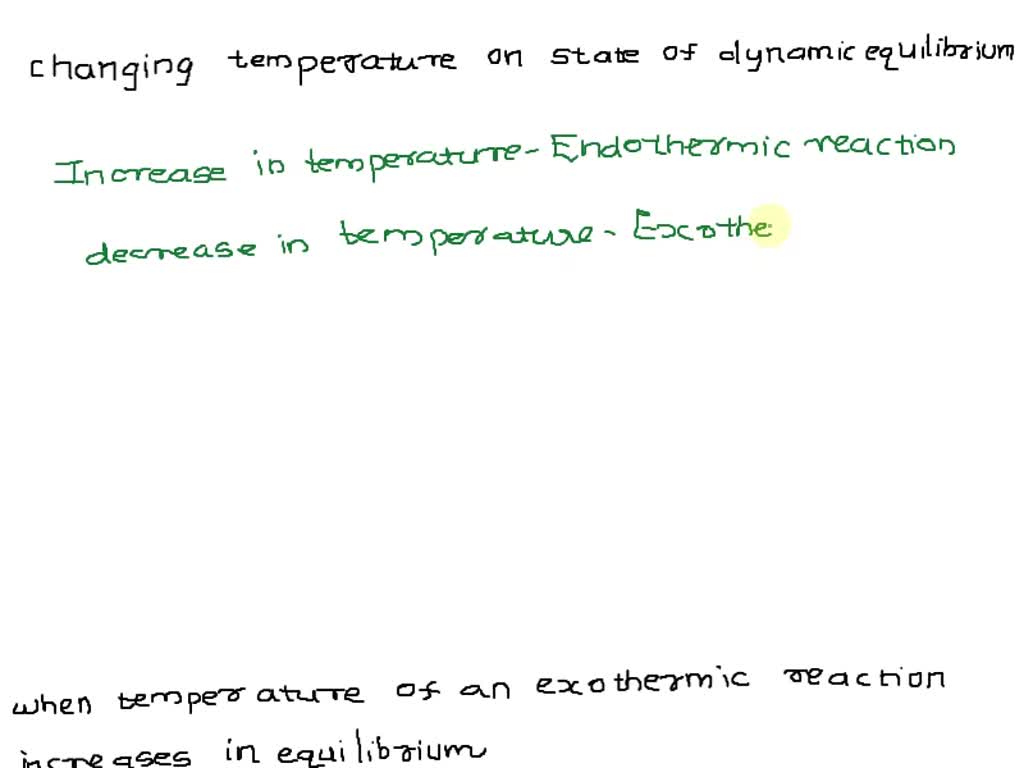 changing temperature on state of dynamic equilibrium
Increase in temperature - Endothermic reaction
decrease in temperature - Exothe
when temperature of an exothermic reaction
increases in equilibrium